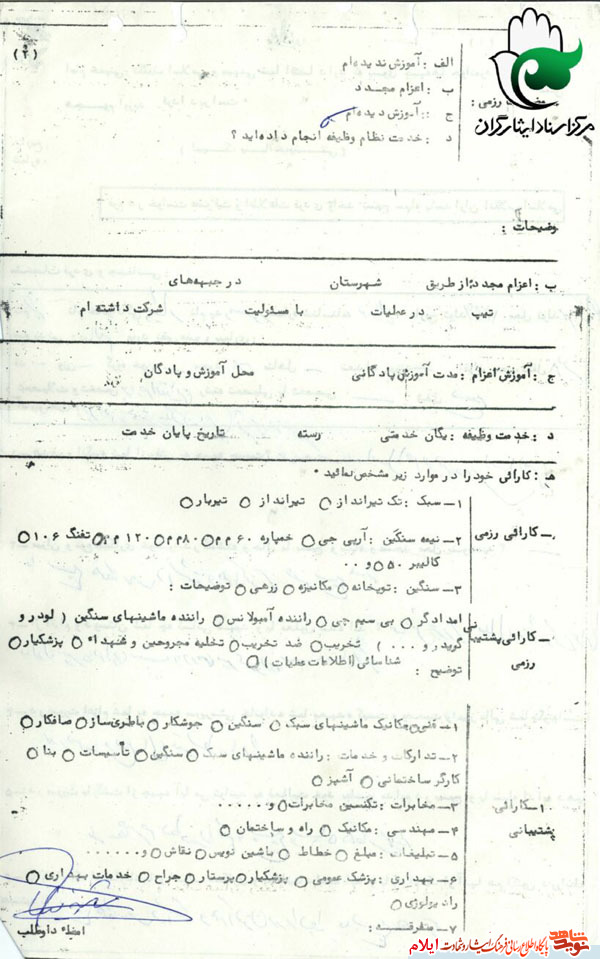 (۲)
مرکز اسناد ایثارگران
الف : آموزش ندیده‌ام
ب : اعزام مجدد
رزمی :
ج : آموزش دیده‌ام
د : خدمت نظام وظیفه انجام داده‌اید ؟
وضیحات :
ب : اعزام مجدد: از طریق شهرستان در جبهه‌های
تیپ در عملیات با مسئولیت شرکت داشته ام
ج : آموزش اعزام : مدت آموزش پادگانی محل آموزش و پادگان
د : خدمت وظیفه : یگان خدمتی رسته تاریخ پایان خدمت
هـ : کارائی خود را در موارد زیر مشخص نمائید .
کارائی رزمی
۱- سبک : تک تیرانداز ○ تیرانداز ○ تیربار ○
۲- نیمه سنگین : آرپی جی ○ خمپاره ۶۰م م ○ ۸۰م م ○ ۱۲۰م م ○ تفنگ ۱۰۶ ○
کالیبر ۵۰ ○ و ۰۰
۳- سنگین : توپخانه ○ مکانیزه ○ زرهی ○ توضیحات :
کارائی پشتیبانی رزمی
امدادگر ○ بی سیم چی ○ راننده آمبولانس ○ راننده ماشینهای سنگین ( لودر و
گریدر و ۰۰۰ ) تخریب ○ ضد تخریب ○ تخلیه مجروحین و شهداء ○ پزشکیار ○
شناسائی ( اطلاعات عملیات ) ○
توضیح :
کارائی پشتیبانی
۱- فنی : مکانیک ماشینهای سبک ○ سنگین ○ جوشکار ○ باطری‌ساز ○ صافکار ○
۲- تدارکات و خدمات : راننده ماشینهای سبک ○ سنگین ○ تأسیسات ○ بنا ○
کارگر ساختمانی ○ آشپز ○
۳- مخابرات : تکنسین مخابرات ○ و ۰۰۰۰۰
۴- مهندسی : مکانیک ○ راه و ساختمان ○
۵- تبلیغات : مبلغ ○ خطاط ○ ماشین نویس ○ نقاش ○ و ۰۰۰۰۰۰
۶- بهداری : پزشک عمومی ○ پزشکیار ○ پرستار ○ جراح ○ خدمات بهداری ○
رادیولوژی ○
۷- متفرقه :
امضاء داوطلب
نوید شاهد پایگاه اطلاع رسانی فرهنگ ایثار و شهادت ایلام